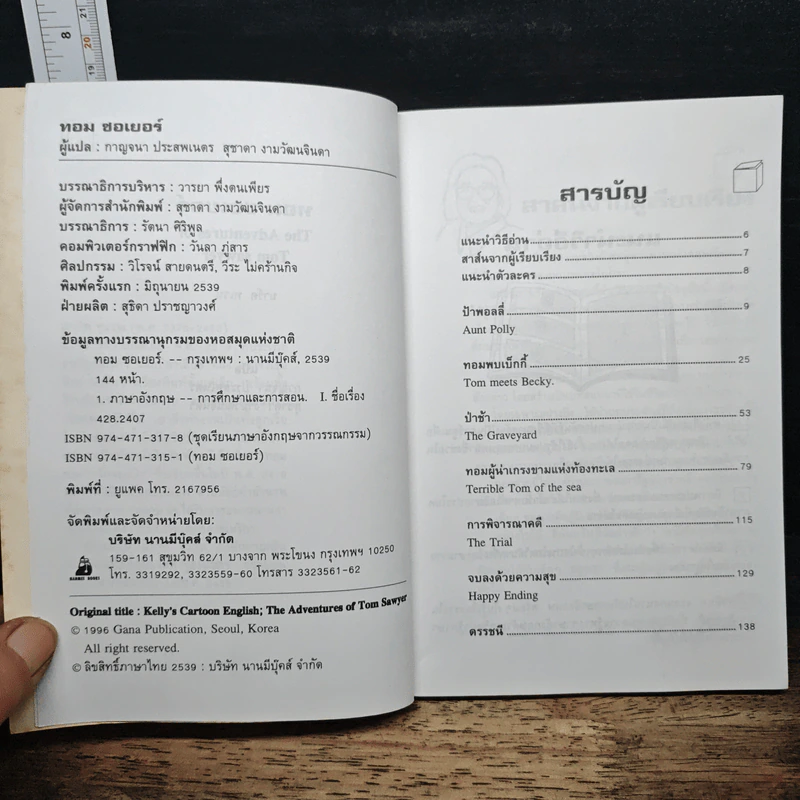 8
21
20
19
ทอม ซอเยอร์
ผู้แปล : กาญจนา ประสพเนตร สุชาดา งามวัฒนจินดา
บรรณาธิการบริหาร : วารยา พึ่งตนเพียร
ผู้จัดการสำนักพิมพ์ : สุชาดา งามวัฒนจินดา
บรรณาธิการ : รัตนา ศิริพูล
คอมพิวเตอร์กราฟฟิก : วันลา ภู่สาร
ศิลปกรรม : วิโรจน์ สายดนตรี, วีระ ไม่คร้านกิจ
พิมพ์ครั้งแรก : มิถุนายน 2539
ฝ่ายผลิต : สุธิดา ปราชญาวงศ์
ข้อมูลทางบรรณานุกรมของหอสมุดแห่งชาติ
ทอม ซอเยอร์. -- กรุงเทพฯ : นานมีบุ๊คส์, 2539
144 หน้า.
1. ภาษาอังกฤษ -- การศึกษาและการสอน. I. ชื่อเรื่อง
428.2407
ISBN 974-471-317-8 (ชุดเรียนภาษาอังกฤษจากวรรณกรรม)
ISBN 974-471-315-1 (ทอม ซอเยอร์)
พิมพ์ที่ : ยูแพค โทร. 2167956
จัดพิมพ์และจัดจำหน่ายโดย:
บริษัท นานมีบุ๊คส์ จำกัด
159-161 สุขุมวิท 62/1 บางจาก พระโขนง กรุงเทพฯ 10250
โทร. 3319292, 3323559-60 โทรสาร 3323561-62
NANMEE BOOKS
Original title : Kelly's Cartoon English; The Adventures of Tom Sawyer
© 1996 Gana Publication, Seoul, Korea
All right reserved.
© ลิขสิทธิ์ภาษาไทย 2539 : บริษัท นานมีบุ๊คส์ จำกัด
สารบัญ
แนะนำวิธีอ่าน 6
สาส์นจากผู้เรียบเรียง 7
แนะนำตัวละคร 8
ป้าพอลลี่ 9
Aunt Polly
ทอมพบเบ็กกี้ 25
Tom meets Becky.
ป่าช้า 53
The Graveyard
ทอมผู้น่าเกรงขามแห่งท้องทะเล 79
Terrible Tom of the sea
การพิจารณาคดี 115
The Trial
จบลงด้วยความสุข 129
Happy Ending
ดรรชนี 138